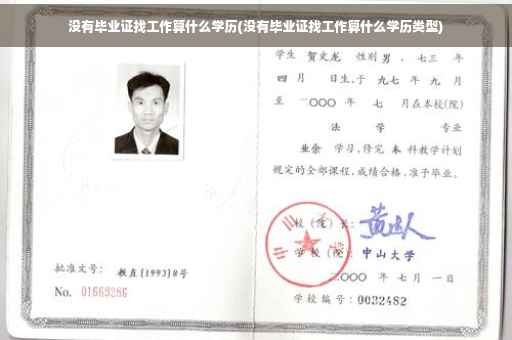 没有毕业证找工作算什么学历(没有毕业证找工作算什么学历类型)
学生 贺文龙 性别男、七三 年
四 月 日生,于 九七 年 九 月
至 二〇〇〇 年 七 月在本校(院)
法 学 专业
业余 学习,修完 本 科教学计划
规定的全部课程,成绩合格,准予毕业。
校(院)长:
学校(院): 中山大学
二〇〇〇 年 七 月 一 日
批准文号: 教直(1993)8号
No. 01663286
学校编号: 0032482